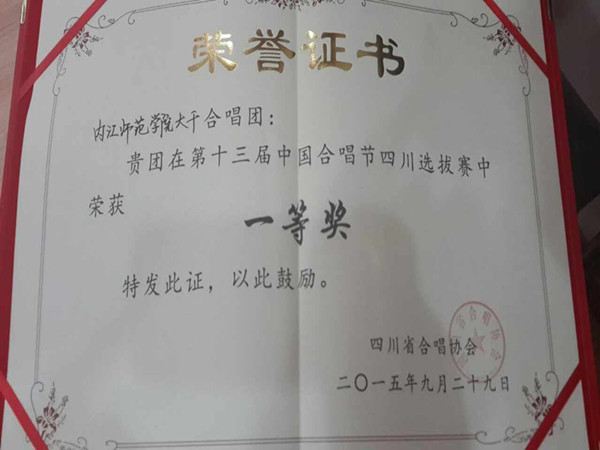 荣誉证书
内江师范学院大千合唱团：
贵团在第十三届中国合唱节四川选拔赛中
荣获
一等奖
特发此证，以此鼓励。
四川省合唱协会
二〇一五年九月二十九日